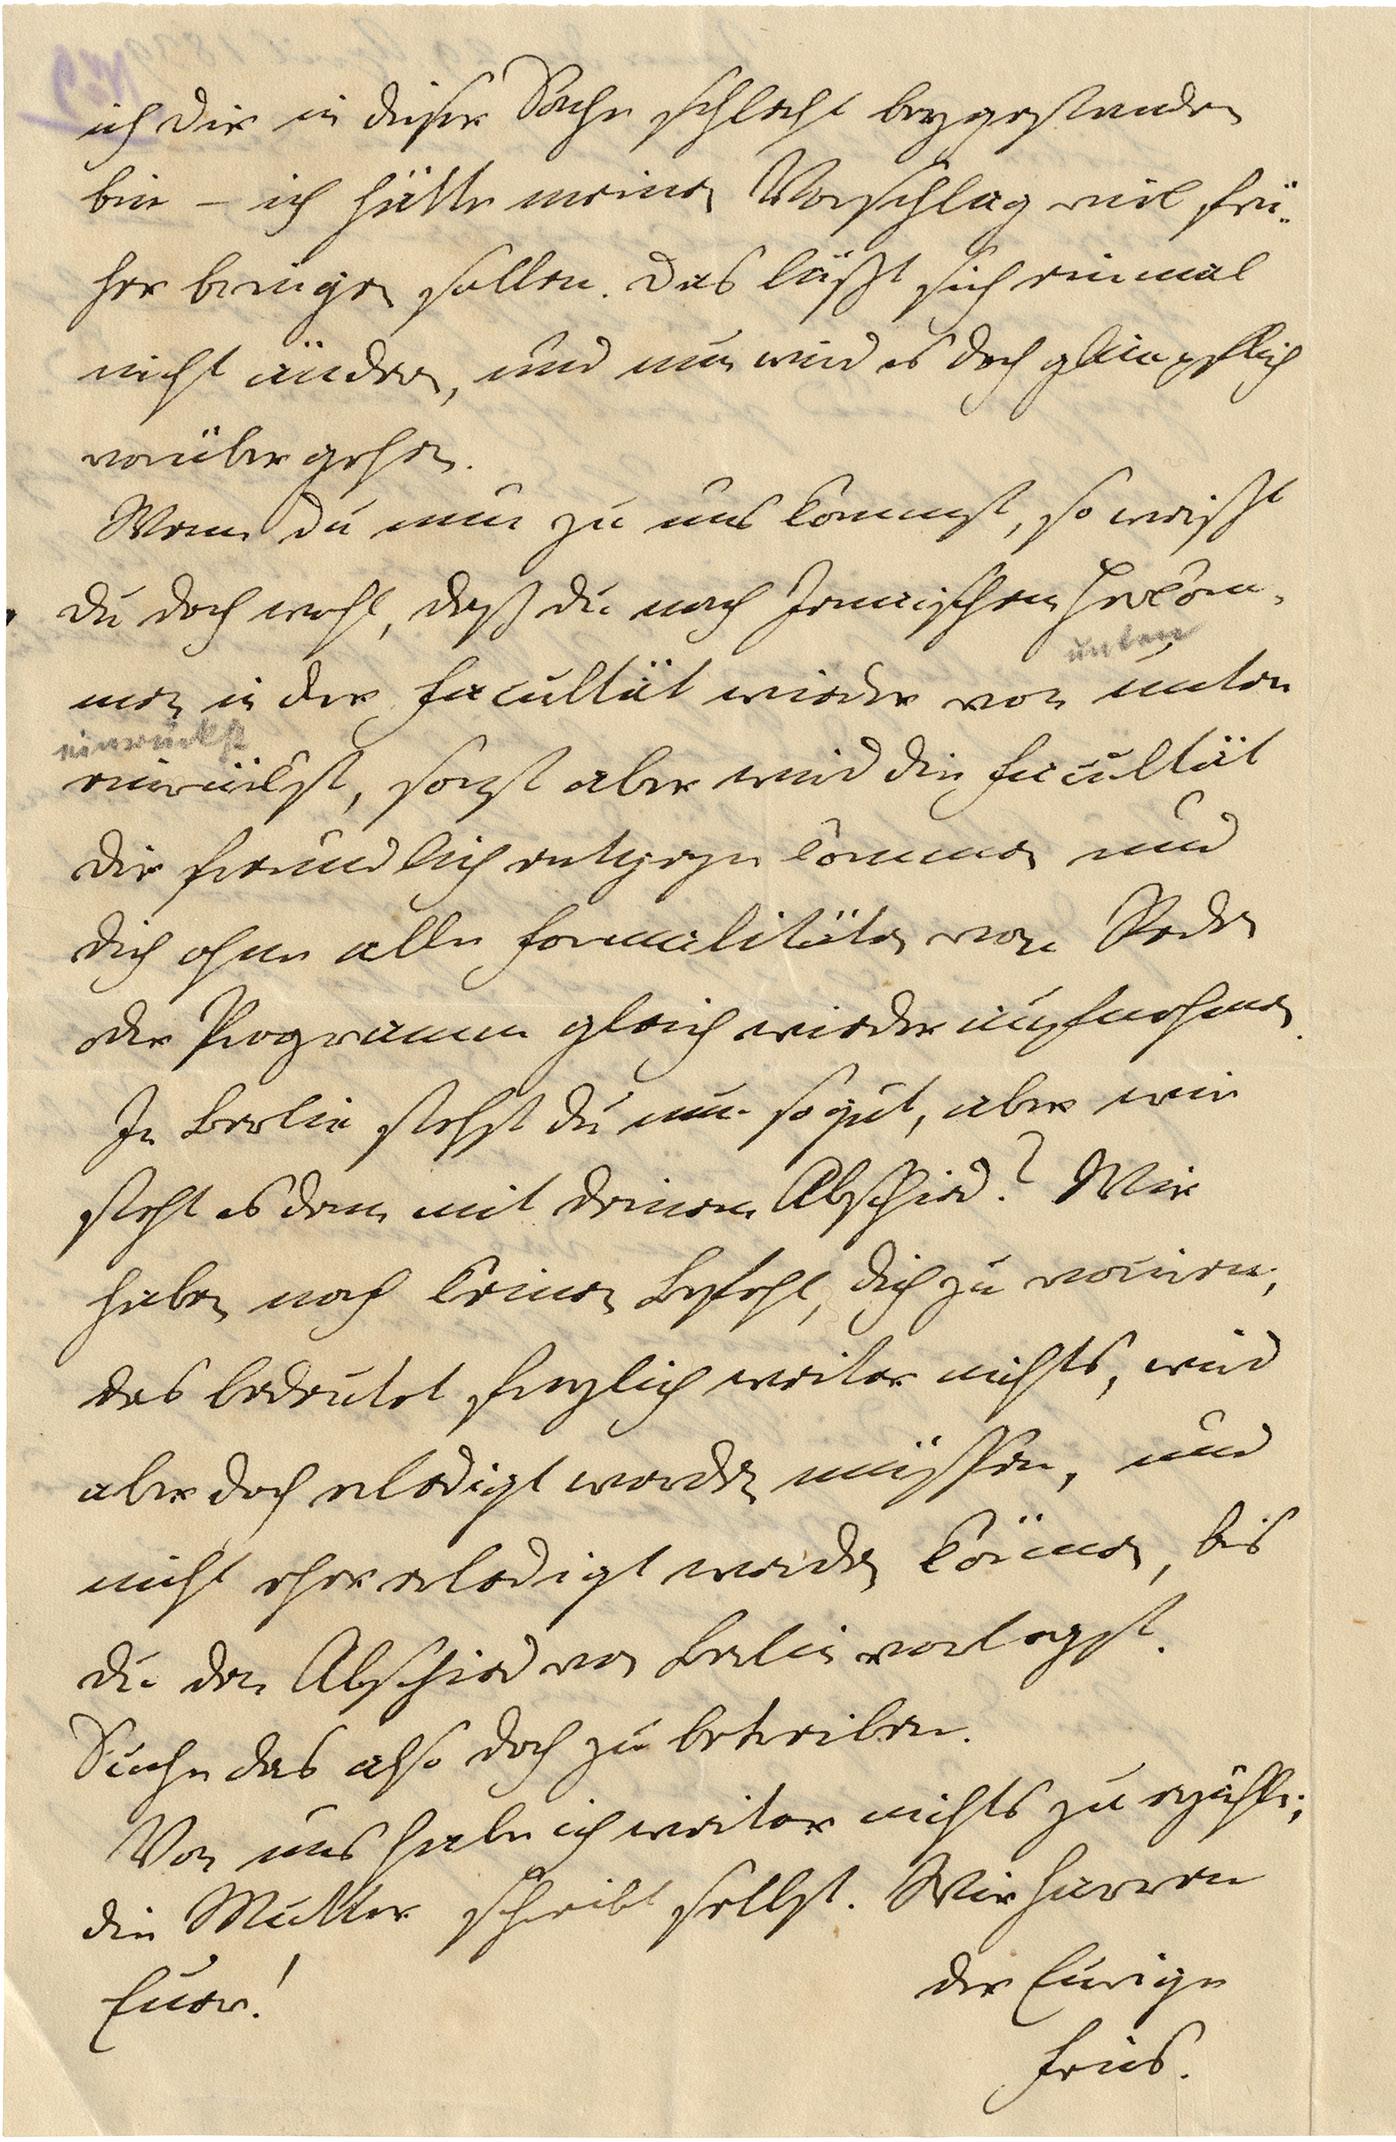 ich dir in dieser Sache schlecht beygestanden
bin – ich hätte meinen Vorschlag viel frü-
her bringen sollen. Das läßt sich einmal
nicht ändern, und nun wird es doch glimpflich
vorübergehen.
Wenn du nun zu uns kommst, so weißt
du doch wohl, daß du nach Jenaischem Herkom-
unten
men in der Facultät wieder von unten
einrückst
einrückst, sonst aber wird die Facultät
dir freundlich entgegen kommen und
dich ohne alle Formalitäten von Reden
oder Programm gleich wieder aufnehmen.
In Berlin stehst du nun so gut, aber wie
steht es denn mit deinem Abschied? Wir
haben noch keinen Befehl, dich zu
das bedeutet freylich weiter nichts, wird
aber doch erledigt werden müssen, und
nicht eher erledigt werden können, bis
du den Abschied von Berlin vorlegst.
Suche das also doch zu betreiben.
Von uns habe ich weiter nichts zu erzählen;
die Mutter schreibt selbst. Wir harren
Euer!
der Eurige
Fries.